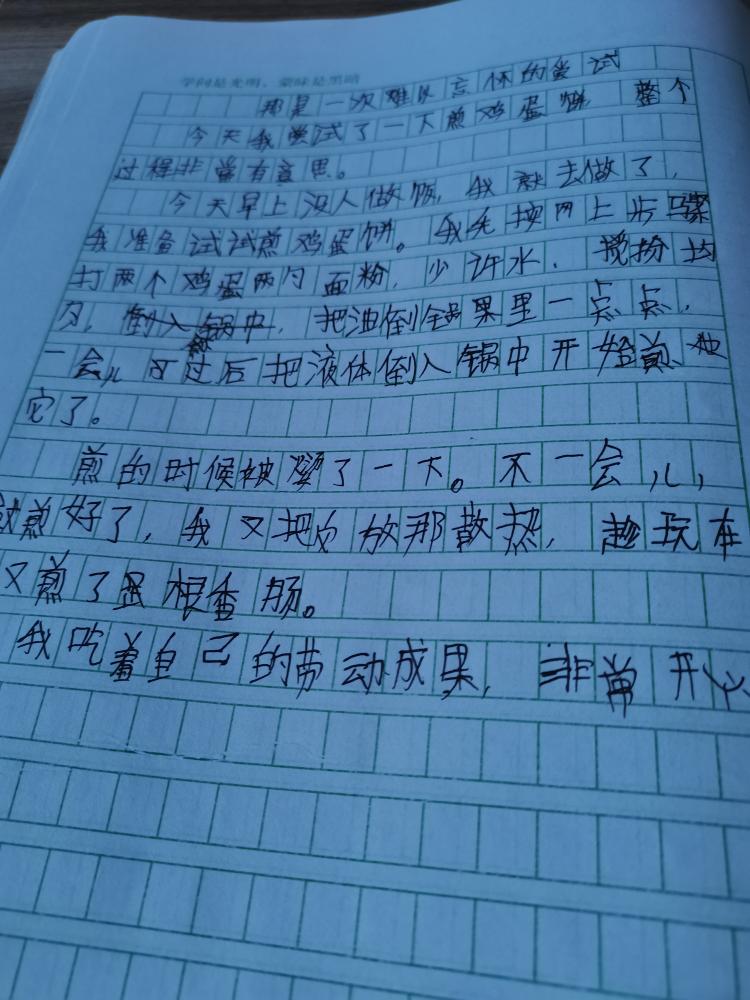 学问是光明，蒙昧是黑暗
那是一次难以忘怀的尝试
今天我尝试了一下煎鸡蛋饼 整个
过程非常有意思。
今天早上没人做饭，我就去做了，
我准备试试煎鸡蛋饼。我先按网上步骤
打两个鸡蛋两勺面粉，少许水，搅拌均
匀，倒入锅中，把油倒锅里一点点，
一会儿过后把液体倒入锅中开始煎
它了。
煎的时候被烫了一下。不一会儿，
就煎好了，我又把放那散热，趁
又煎了根香肠。
我吃着自己的劳动成果，非常开